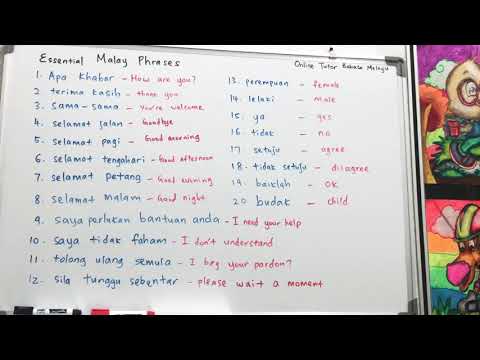 Essential Malay Phrases
Online Tutor Bahasa Melayu
1. Apa khabar - How are you?
2 terima kasih - thank you
3. sama-sama - You're welcome
4. selamat jalan - Goodbye
5. selamat pagi - Good morning
6. selamat tengahari - Good afternoon
7. selamat petang - Good evening
8. selamat malam - Good night
9. saya perlukan bantuan anda - I need your help
10. saya tidak faham - I don't understand
11. tolong ulang semula - I beg your pardon?
12. sila tunggu sebentar - please wait a moment
13. perempuan - female
14. lelaki - male
15. ya - yes
16. tidak - no
17. setuju - agree
18. tidak setuju - disagree
19. baiklah - OK
20 budak - child